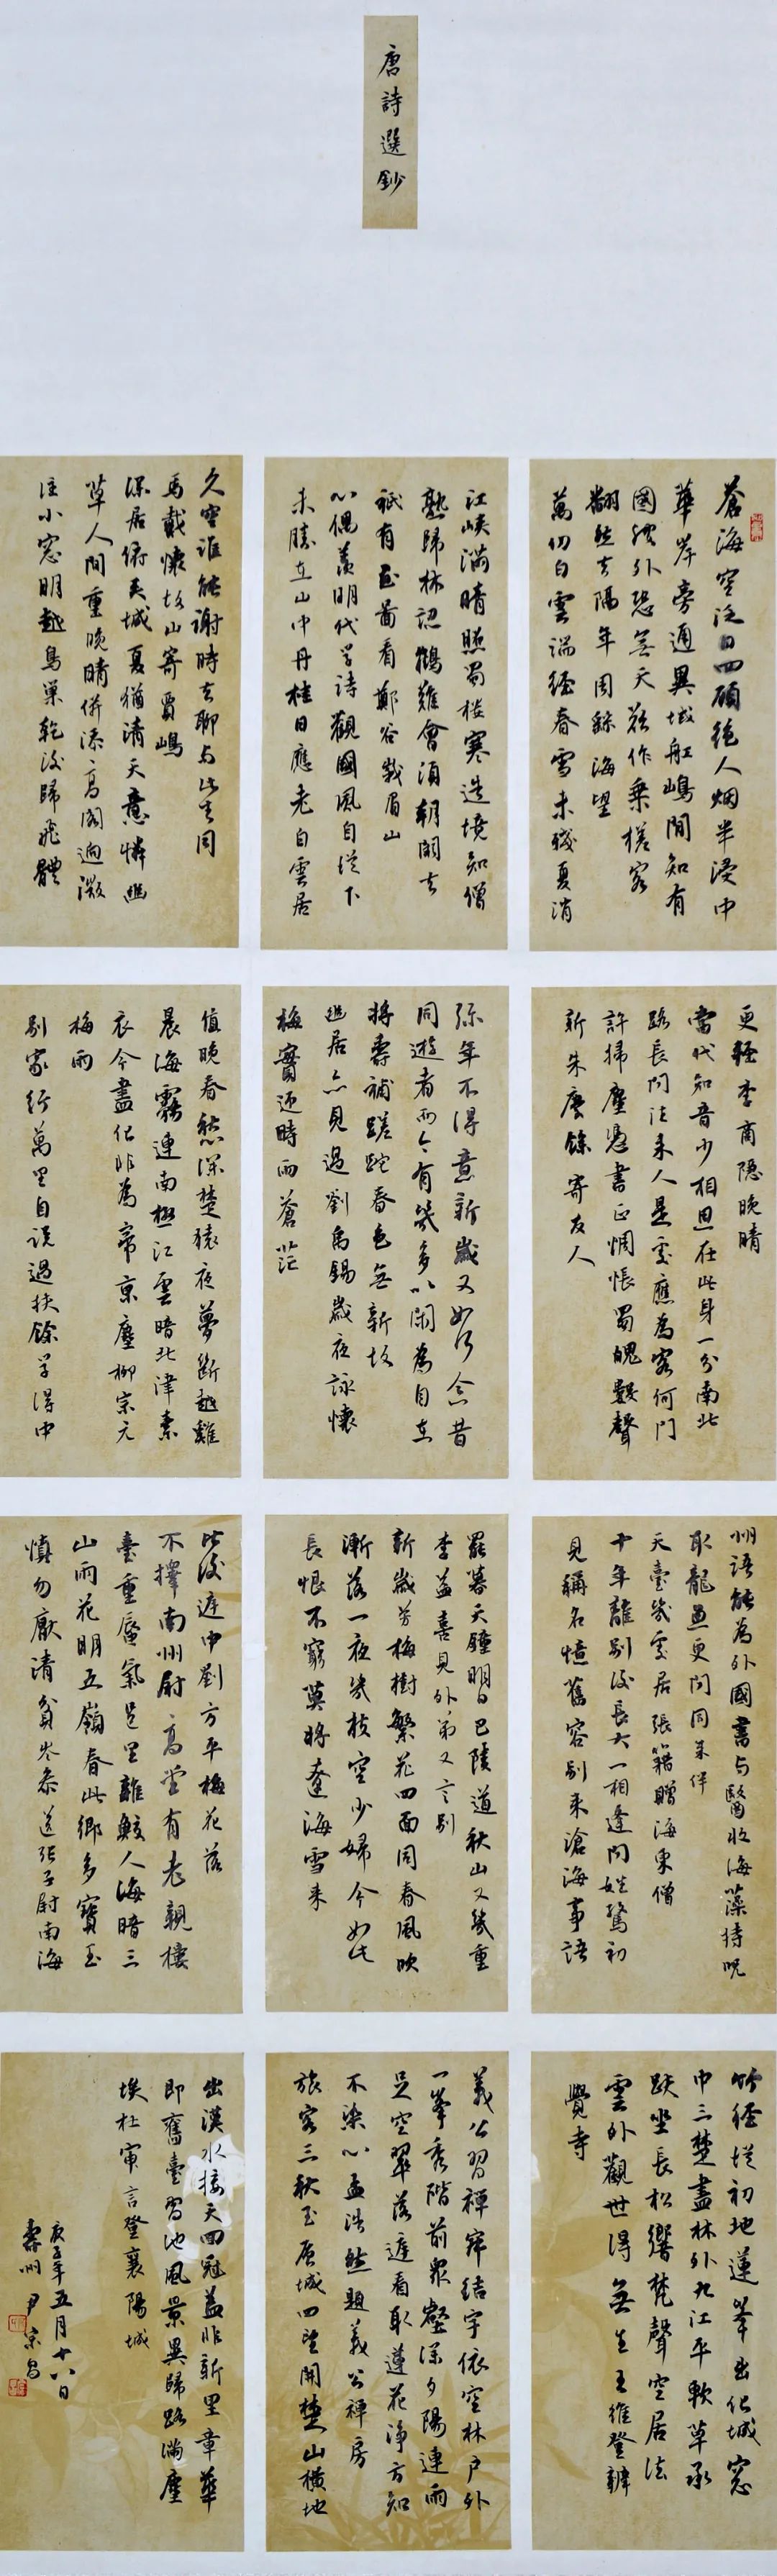 唐詩選鈔
蒼海空泛日四顧絕人烟半浸中
華岸旁通異域船嶋間知有
國波外恐無天欲作乘槎客
翻然去隔年周繇海望
萬仞白雲端經春雪未殘夏消
江峽滿晴照蜀樓寒造境知僧
熟歸林認鶴難會須朝闕去
衹有畫圖看鄭谷峨眉山
心偶羨明代學詩觀國風自從下
未勝在山中丹桂日應老白雲居
久空誰能謝時去聊與此生同
馬戴懷故山寄賈嶋
深居俯夾城夏猶清天意憐幽
草人間重晚晴併添高閣迥微
注小窓明越鳥巢乾後歸飛體
更輕李商隱晚晴
當代知音少相思在此身一分南北
路長問往來人是處應為客何門
許掃塵憑書正惆悵蜀魄數聲
新朱慶餘寄友人
彌年不得意新歲又如何念昔
同遊者而今有幾多以閑為自在
將壽補蹉跎春色無新故
幽居亦見過劉禹錫歲夜詠懷
梅實迎時雨蒼茫
值晚春愁深楚猿夜夢斷越雞
晨海霧連南極江雲暗北津素
衣今盡化非為帝京塵柳宗元
梅雨
別家行萬里自說過扶餘學得中
州語能為外國書與醫收海藻持呪
取龍魚更問同來伴
天臺幾處居張籍贈海東僧
十年離別後長大一相逢問姓驚初
見稱名憶舊容別來滄海事語
罷暮天鐘明日巴陵道秋山又幾重
李益喜見外弟又言別
新歲芳梅樹繁花四面同春風吹
漸落一夜幾枝空少婦今如此
長恨不窮莫將遼海雪來
比後庭中劉方平梅花落
不擇南州尉高堂有老親樓
臺重蜃氣邑里雜鮫人海暗三
山雨花明五嶺春此鄉多寶玉
慎勿厭清貧岑參送張子尉南海
竹徑從初地蓮峯出化城窓
中三楚盡林外九江平軟草承
趺坐長松響梵聲空居法
雲外觀世得無生王維登辨
覺寺
義公習禪寂結宇依空林戶外
一峯秀階前眾壑深夕陽連雨
足空翠落庭看取蓮花淨方知
不染心孟浩然題義公禪房
旅客三秋至層城四望開楚山橫地
出漢水接天回冠蓋非新里章華
即舊臺習池風景異歸路滿塵
埃杜審言登襄陽城
庚子年五月十八日
壽州尹宗昌